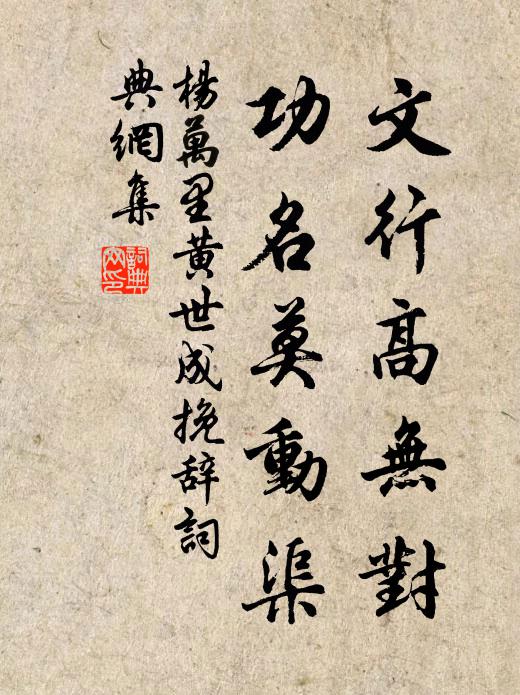 文行高無對
功名莫動渠
楊萬里黃世成挽辞詞
典網集
詞典